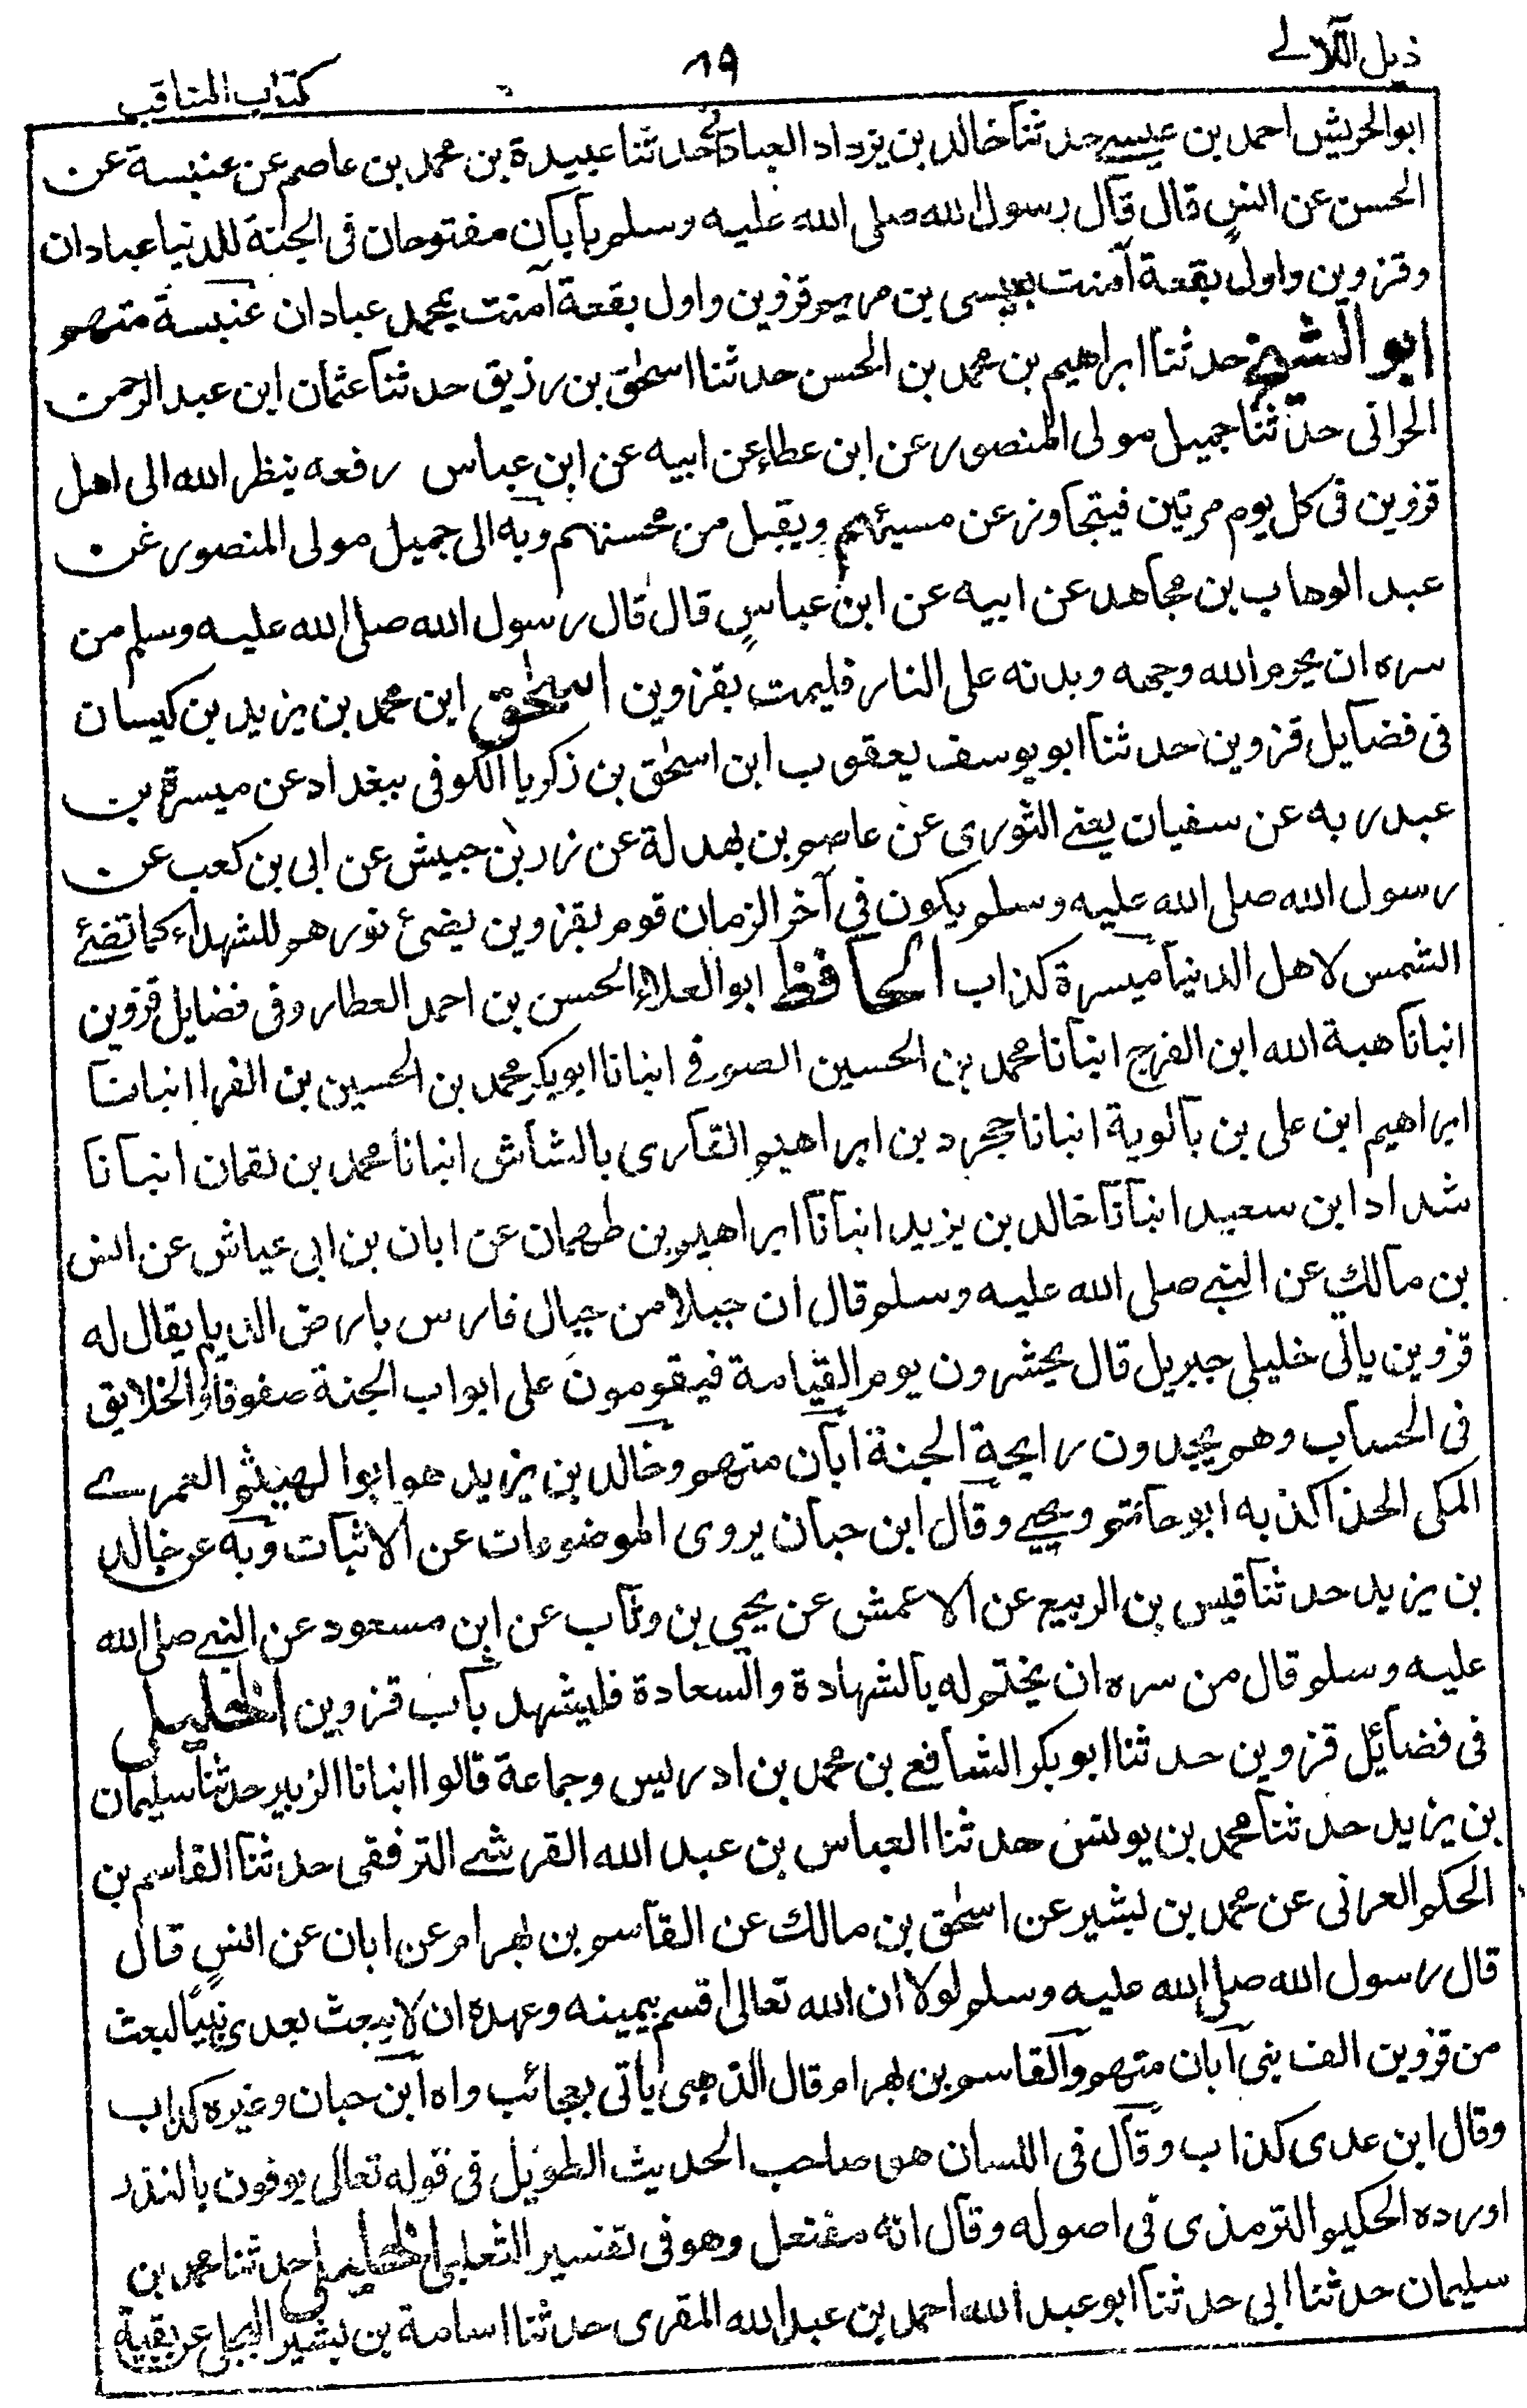 ذيل اللآلے
٨٩
كتاب المناقب
ابوالحريش احمد بن عيسے حدثنا خالد بن يزداد العباداني حدثنا عبيدة بن محمد بن عاصم عن عنبسة عن
الحسن عن انس قال قال رسول الله صلى الله عليه وسلم بابان مفتوحان فى الجنة للدنيا عبادان
وقزوين واول بقعة آمنت بعيسى بن مريم قزوين واول بقعة آمنت بمحمد عبادان عنبسة متهم
ابو الشيخ حدثنا ابراهيم بن محمد بن الحسن حدثنا اسحٰق بن رزيق حدثنا عثمان ابن عبد الرحمن
الحرانى حدثنا جميل مولى المنصور عن ابن عطاء عن ابيه عن ابن عباس رفعه ينظر الله الى اهل
قزوين فى كل يوم مرتين فيتجاوز عن مسيئهم ويقبل من محسنهم وبه الى جميل مولى المنصور عن
عبد الوهاب بن مجاهد عن ابيه عن ابن عباس قال قال رسول الله صلى الله عليه وسلم من
سره ان يحرم الله وجهه وبدنه على النار فليمت بقزوين اسحٰق ابن محمد بن يزيد بن كيسان
فى فضايل قزوين حدثنا ابو يوسف يعقوب ابن اسحٰق بن زكريا الكوفى ببغداد عن ميسرة بن
عبد ربه عن سفيان يعنے الثورى عن عاصم بن بهدلة عن زر بن حبيش عن ابى بن كعب عن
رسول الله صلى الله عليه وسلم يكون فى آخر الزمان قوم بقزوين يضئ نورهم للشهداء كما تضئ
الشمس لاهل الدنيا ميسرة كذاب الحافظ ابو العلاء الحسن بن احمد العطار وفى فضايل قزوين
انبانا هبة الله ابن الفرج انبانا محمد بن الحسين الصوفے انبانا ابوبكر محمد بن الحسين بن الفرا انبانا
ابراهيم ابن على بن بالوية انبانا حجرد بن ابراهيم القارى بالشاش انبانا محمد بن نقمان انبانا
شداد ابن سعيد انبانا خالد بن يزيد انبانا ابراهيم بن طهمان عن ابان بن ابى عياش عن انس
بن مالك عن النبے صلى الله عليه وسلم قال ان جبلا من جبال فارس بارض الديلم يقال له
قزوين يأتى خليلى جبريل قال يحشرون يوم القيامة فيقومون على ابواب الجنة صفوفا والخلايق
فى الحساب وهم يجدون رايحة الجنة ابان متهم وخالد بن يزيد هو ابو الهيثم العمرے
المكى الحذا كذبه ابو حاتم ويحيے وقال ابن حبان يروى الموضوعات عن الاثبات وبه عن خالد
بن يزيد حدثنا قيس بن الربيع عن الاعمش عن يحيى بن وثاب عن ابن مسعود عن النبے صلى الله
عليه وسلم قال من سره ان يختم له بالشهادة والسعادة فليشهد باب قزوين الخليلى
فى فضائل قزوين حدثنا ابوبكر الشافعے بن محمد بن ادريس وجماعة قالوا انبانا الزبير حدثنا سليمان
بن يزيد حدثنا محمد بن يونس حدثنا العباس بن عبد الله القرشے الترفقى حدثنا القاسم بن
الحكم العرنى عن محمد بن بشير عن اسحٰق بن مالك عن القاسم بن بهرام عن ابان عن انس قال
قال رسول الله صلى الله عليه وسلم لولا ان الله تعالى اقسم بيمينه وعهده ان لا يبعث بعدى نبيا لبعث
من قزوين الف نبى ابان متهم والقاسم بن بهرام قال الذهبى ياتى بعجائب واه ابن حبان وغيره كذاب
وقال ابن عدى كذاب وقال فى اللسان هو صاحب الحديث الطويل فى قوله تعالى يوفون بالنذر
اورده الحكيم الترمذى فى اصوله وقال انه مفتعل وهو فى تفسير الثعلبى الخليلى حدثنا محمد بن
سليمان حدثنا ابى حدثنا ابو عبد الله احمد بن عبد الله المقرى حدثنا اسامة بن بشير البجلى عن بقية